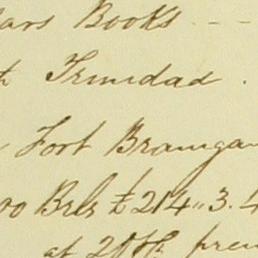 ars Books
Trinidad.
Fort Bramga
00 Brls £214.. 3. 4
at 20th prem